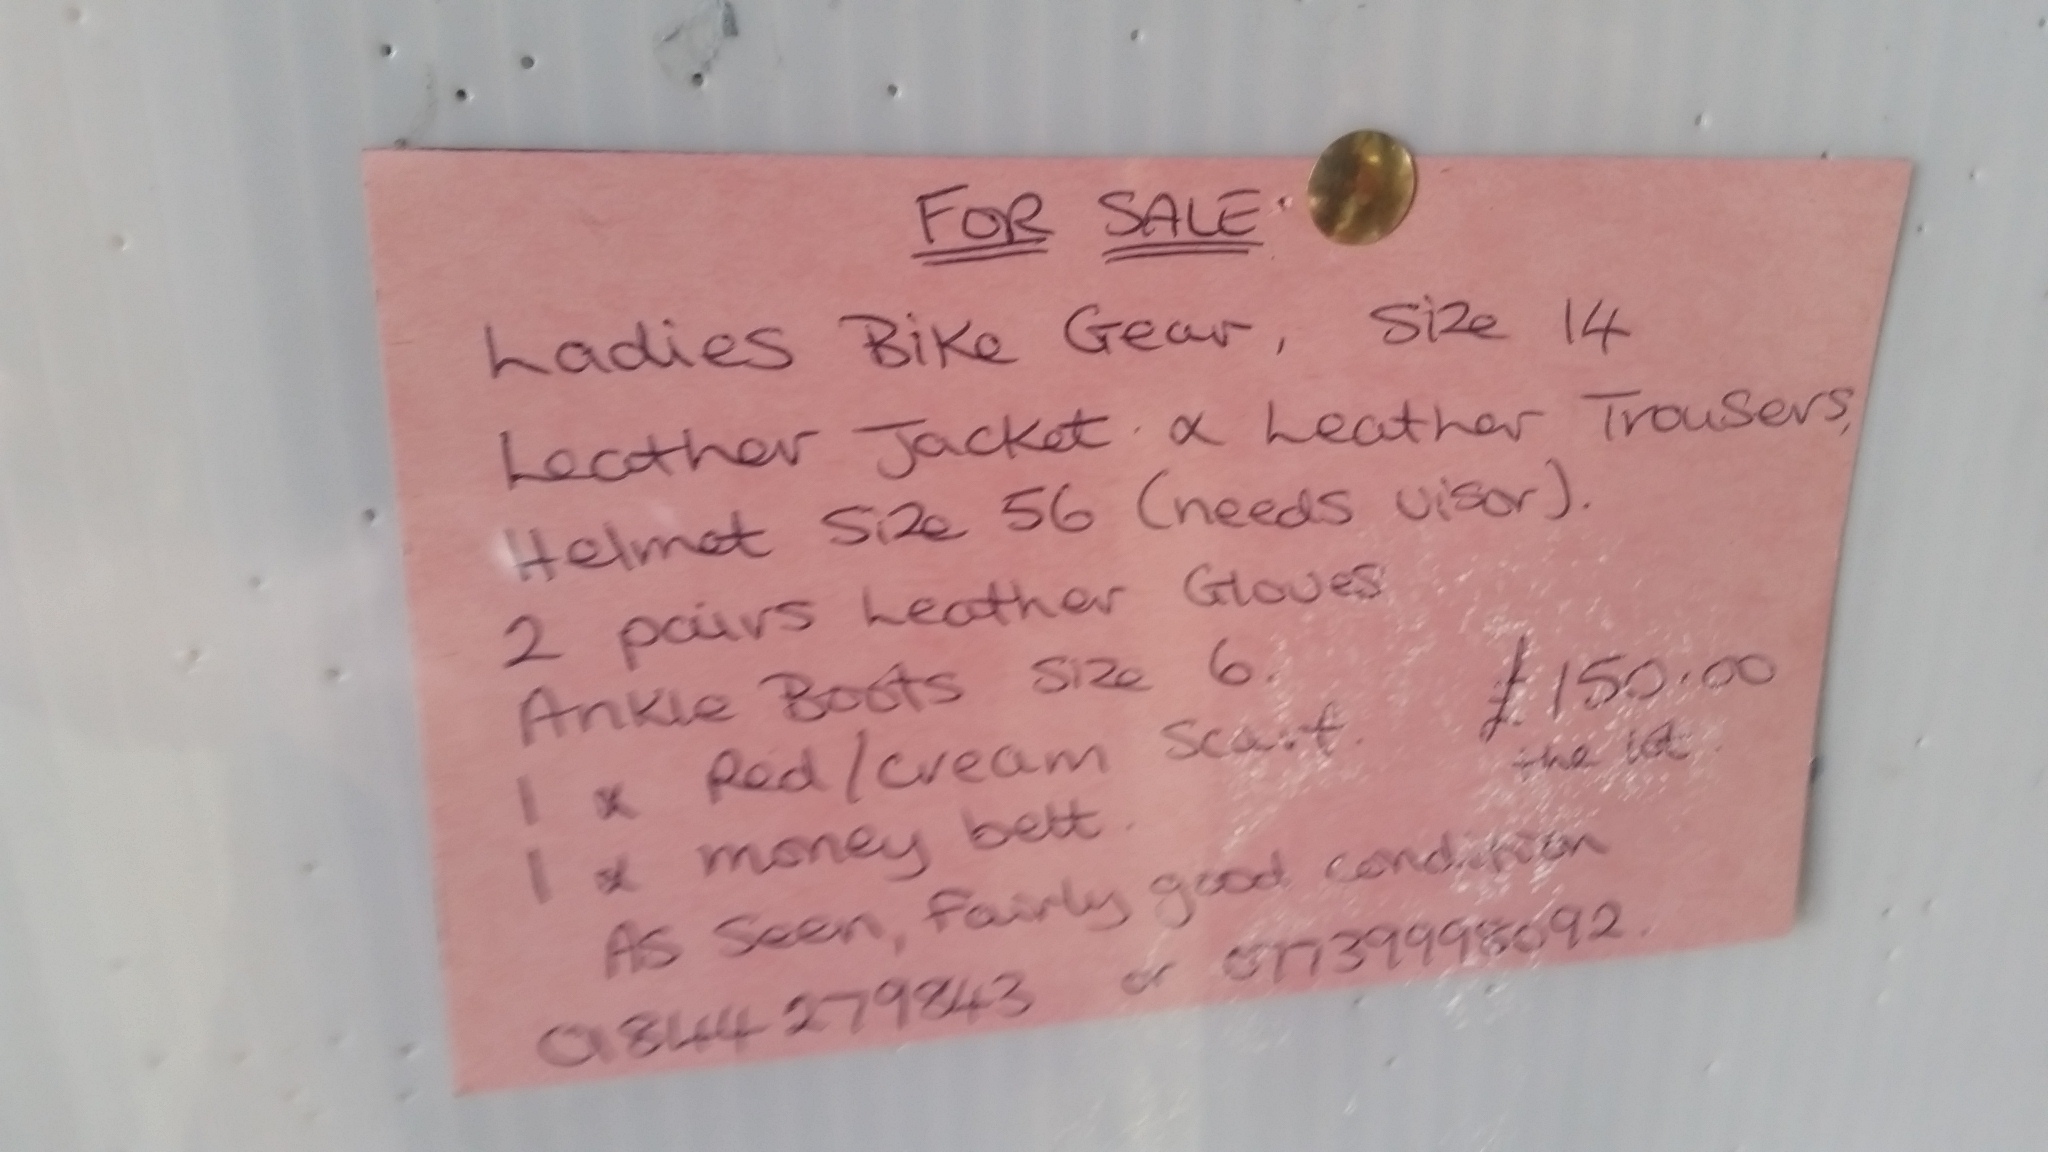 FOR SALE.
Ladies Bike Gear, Size 14
Leather Jacket & Leather Trousers,
Helmet Size 56 (needs visor).
2 pairs Leather Gloves
Ankle Boots Size 6.
1 x Red/cream Scarf.
£150.00
the lot.
1 x money belt.
As Seen, Fairly good condition
01844 279843 or 07739998092.